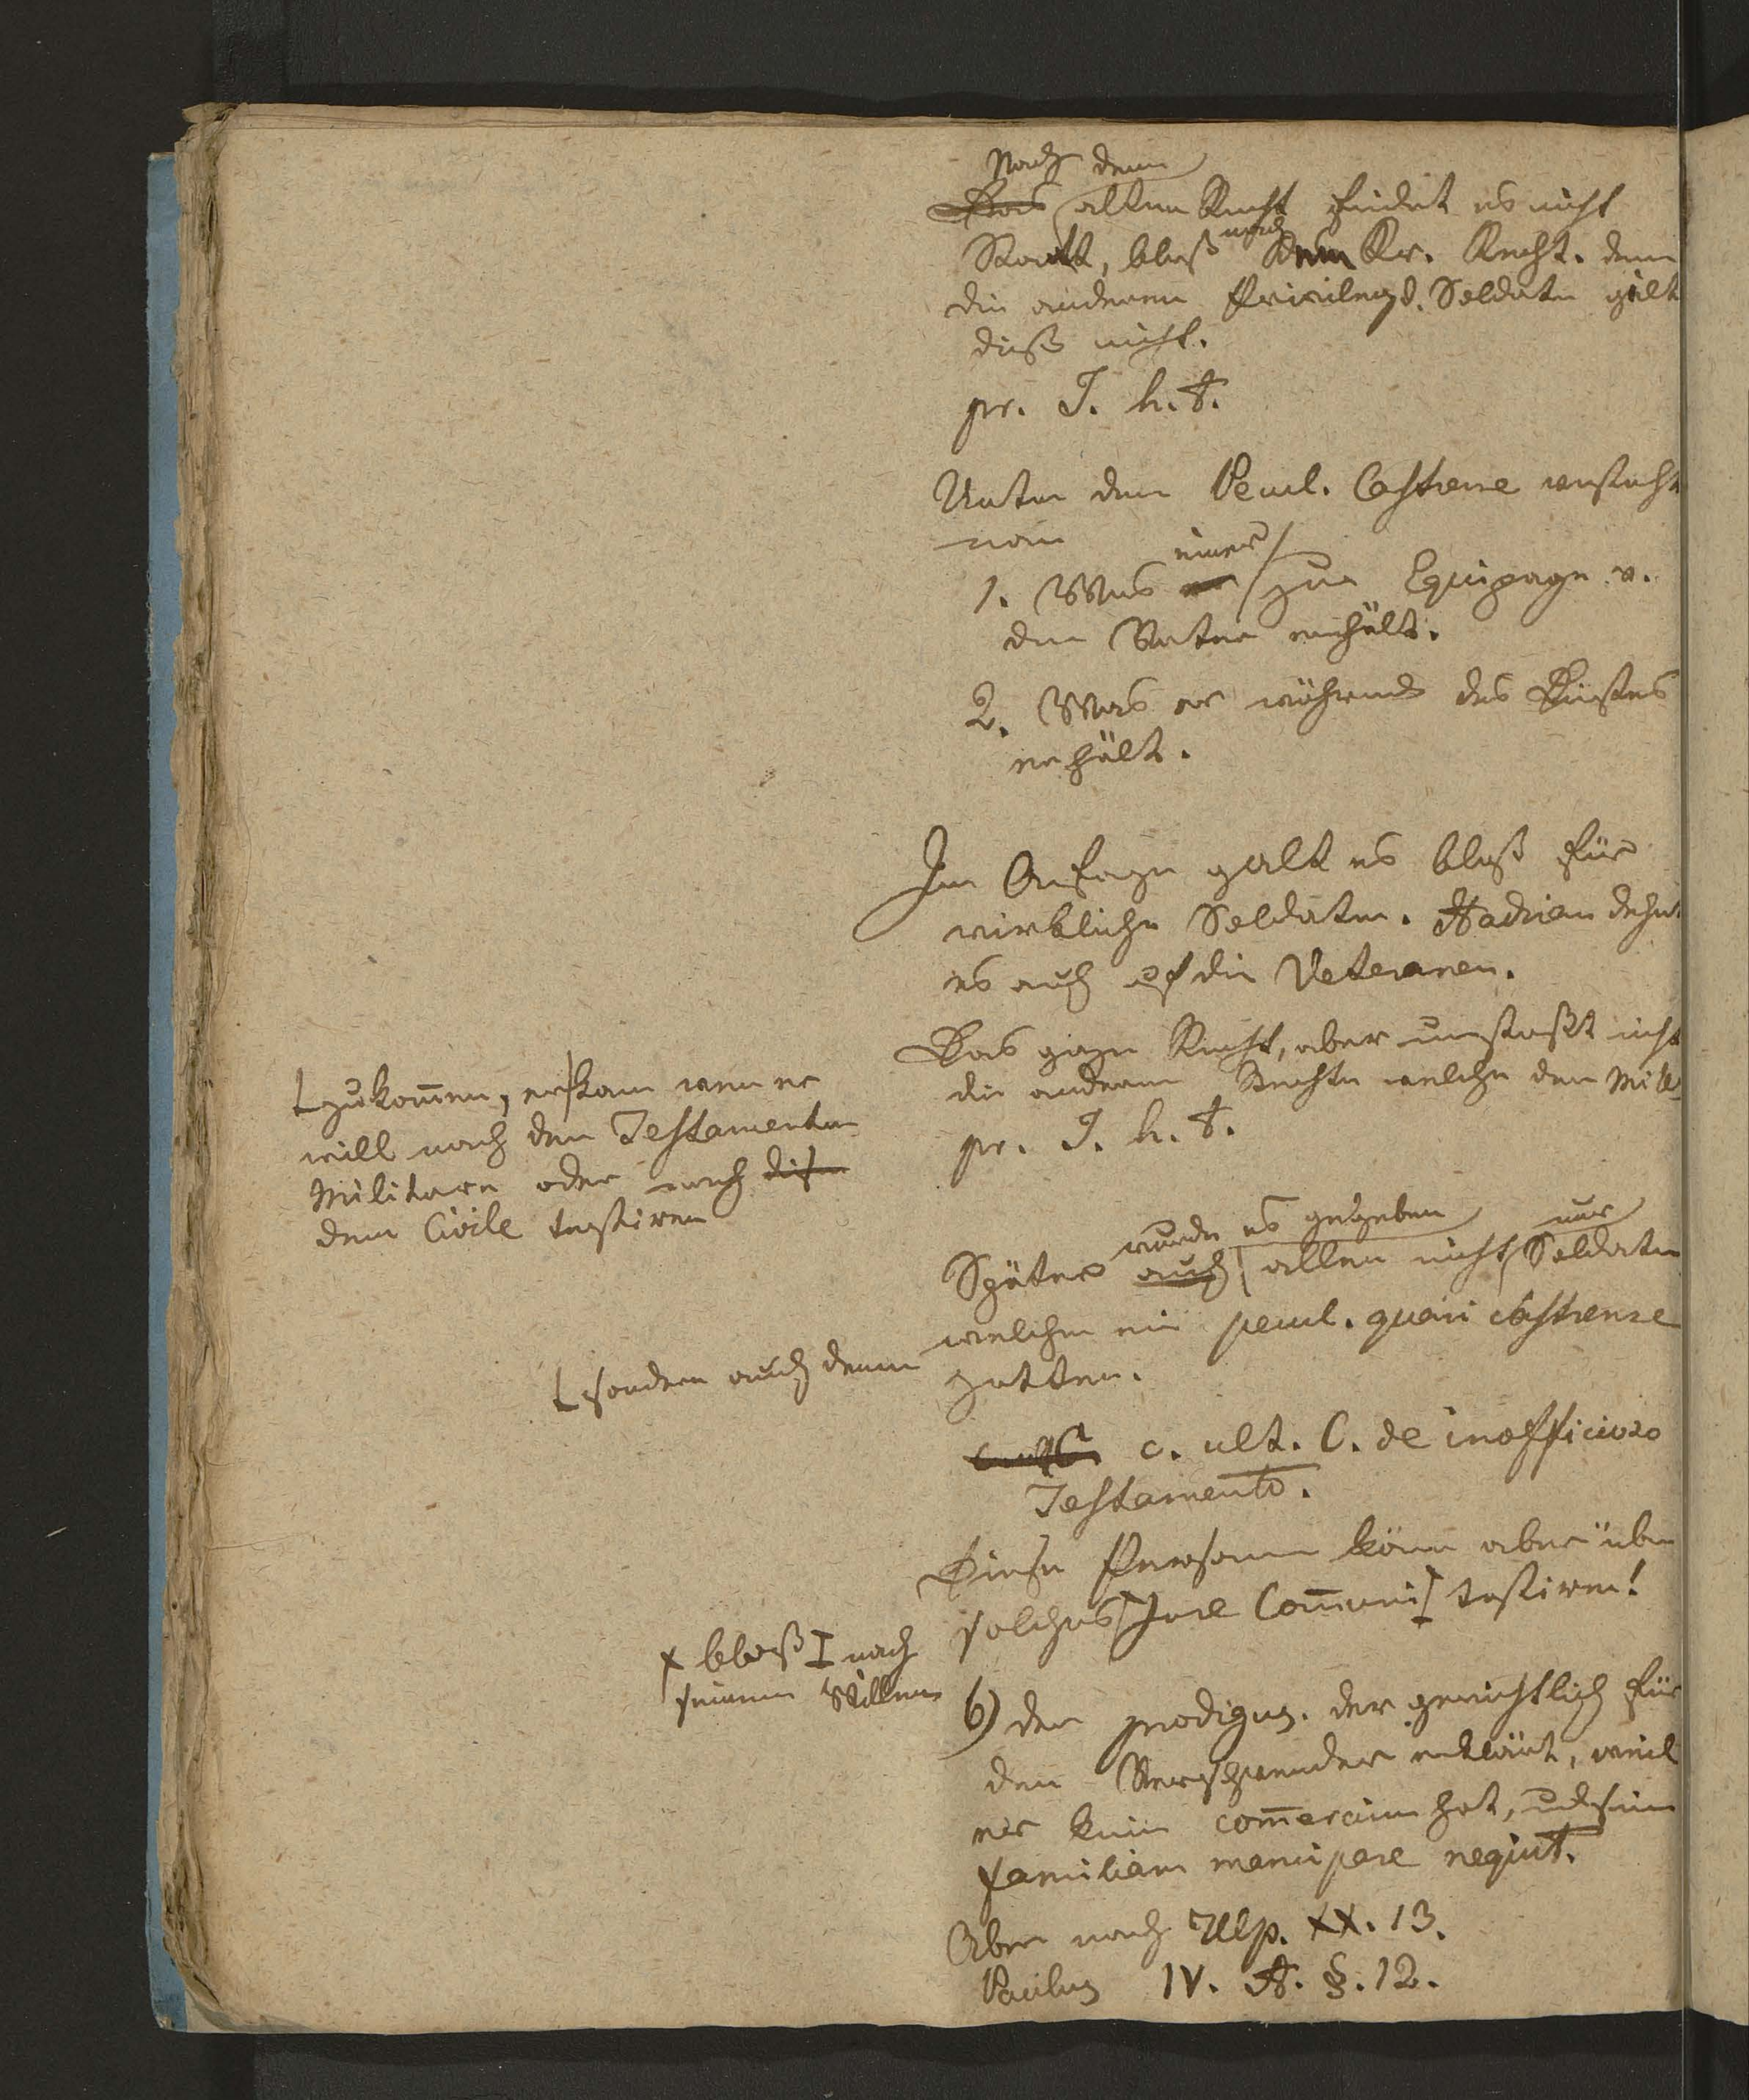 Nach dem
Das alten Recht findet es nicht
Statt, bloß nach dem Kr. Recht. dem
die anderen Privilegd. Soldaten gilt
dieß nicht.
pr. I. h. t.
Unter dem Pecul. Castrense versteht
man
1. Was einer zur Equipage v.
dem Vater erhält.
2. Was er während des Dienstes
erhält.
Im Anfange galt es bloß für
wirkliche Soldaten. Hadrian dehnt
es auch auf die Veteranen.
Das ganze Recht, aber umstoßt nicht
die anderen Rechte welche dem Mil
pr. I. h. t.
zukom̄en, er kann wenn er
will nach dem Testamentum
Militare oder nach
dem Civile testiren
wurde es gegeben nur
Später auch allen nicht Soldaten
welchen ein pecul. quasi castrense
hatten.
sondern auch denen
c. ult. C. de inofficioso
Testamento.
Diese Personen könn aber über
solches Jure Com̄uni testiren!
x bloß I nach
seinem Willen
6) der prodigus. der gerichtlich für
den Verschwender erklärt, weil
er kein com̄ercium hat, und sein
familiam mancipare nequit.
Aber nach Ulp. XX. 13.
Paulus IV. A. §. 12.